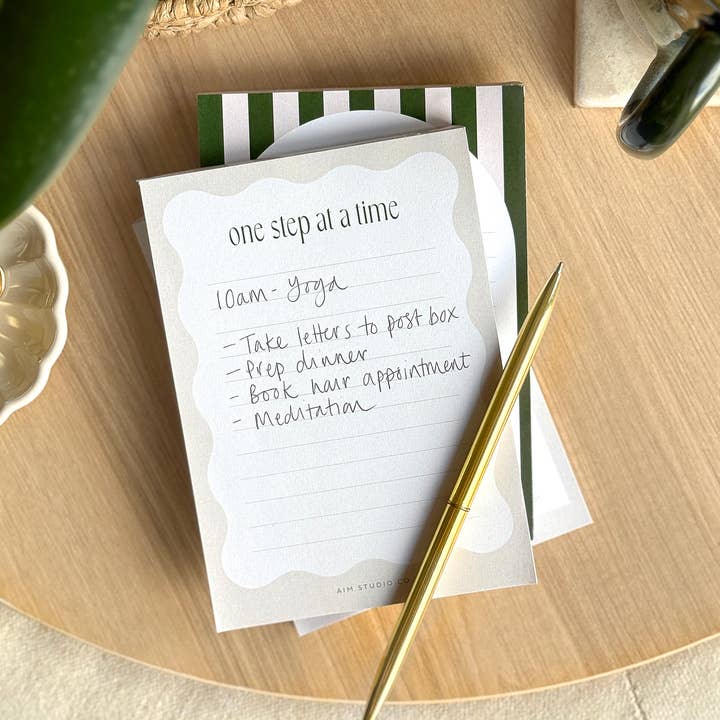 one step at a time
10am - Yoga
- Take letters to post box
- Prep dinner
- Book hair appointment
- Meditation
AIM.STUDIO.CO